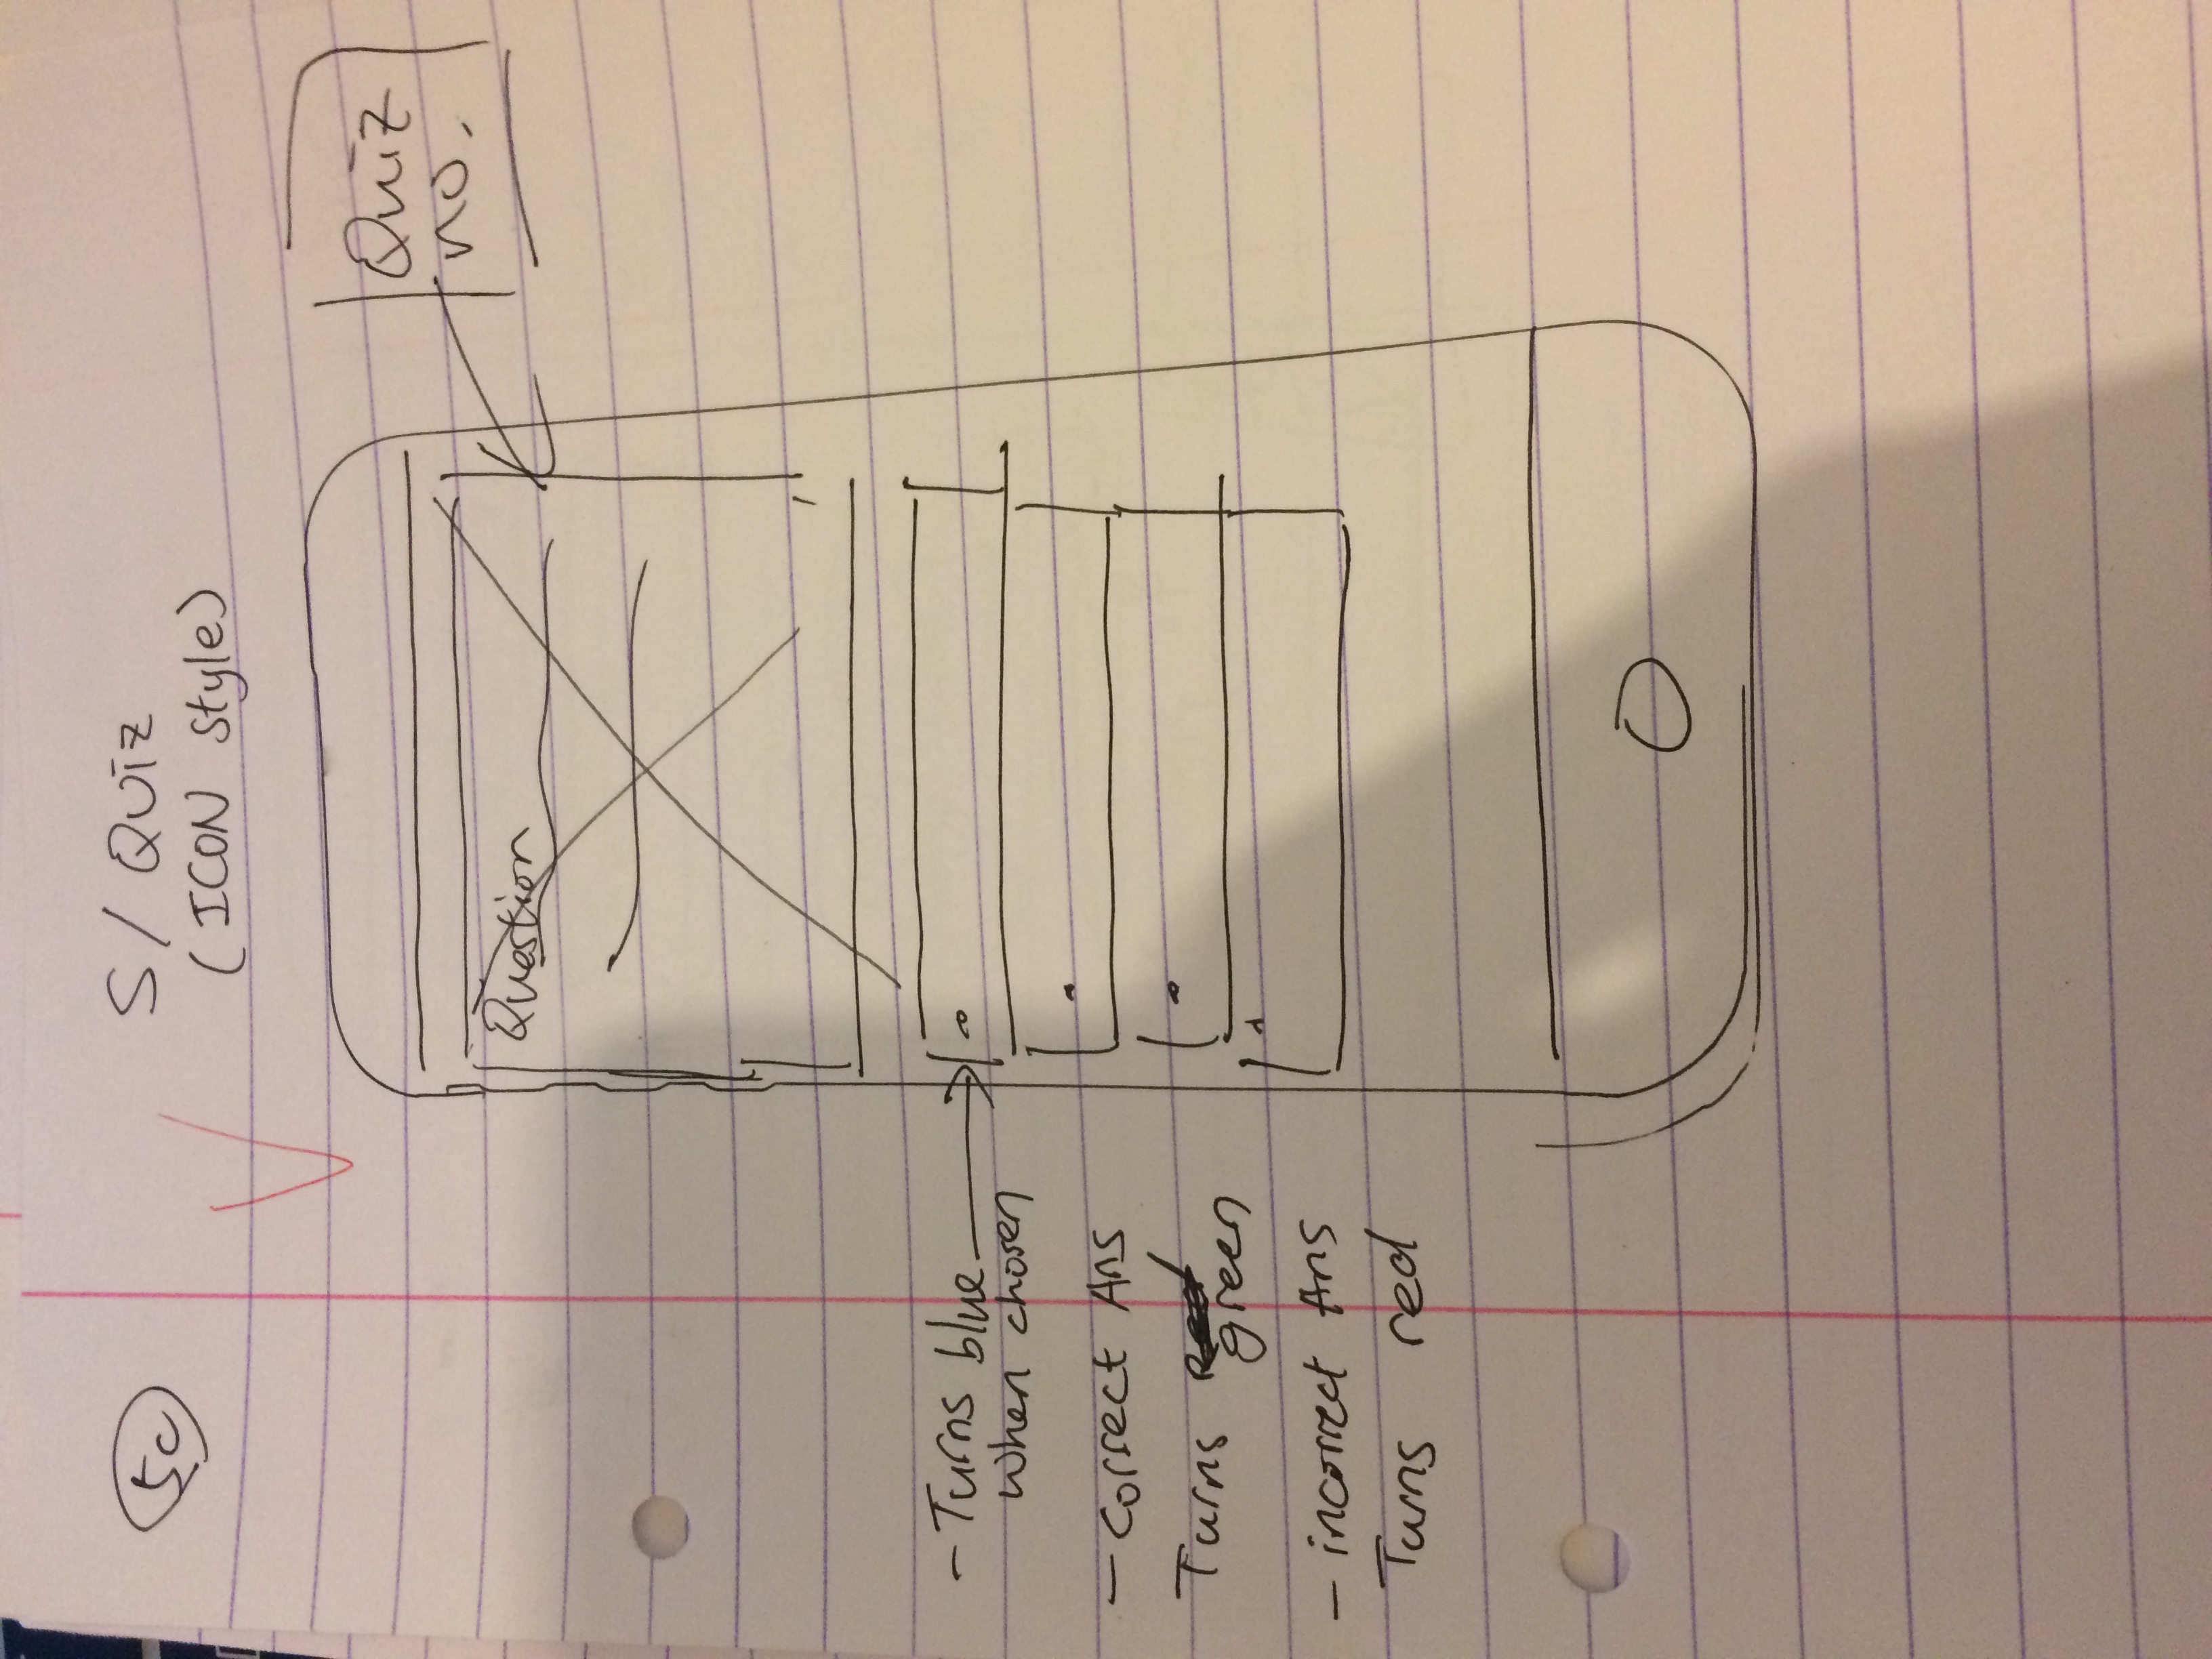 5c
S/ QUIZ
(ICON style)
Quiz
no.
Question
- Turns blue
when chosen
- correct Ans
Turns
green
- incorrect Ans
Turns red